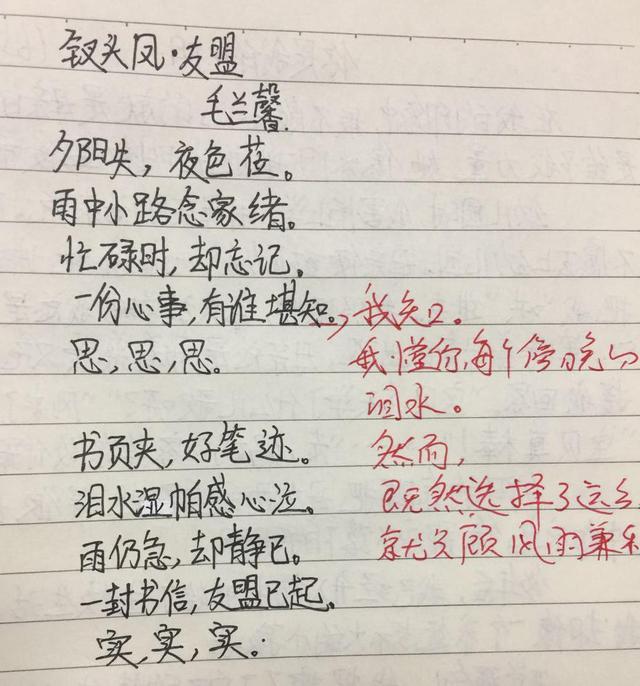 钗头凤·友盟
毛兰馨
夕阳失，夜色莅。
雨中小路念家绪。
忙碌时，却忘记。
一份心事，有谁堪知。→我知。
思，思，思。 我懂你，每个傍晚的
泪水。
书页夹，好笔迹。 然而，
泪水湿帕感心泣。 既然选择了这么
雨仍急，却静已。 就只顾风雨兼程
一封书信，友盟已起。
实，实，实。